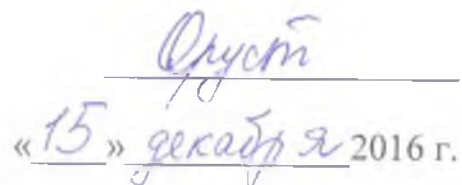 «15» декабря 2016 г.